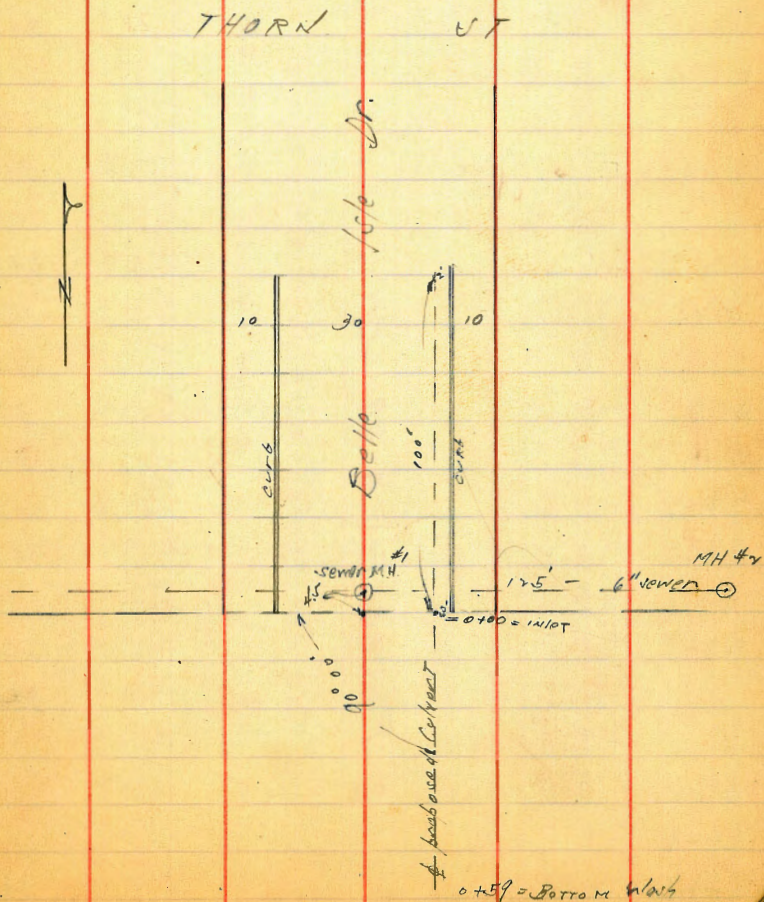 THORN ST
Belle Isle Dr.
N
10
30
10
curb
100'
curb
sewer MH. #1
MH #2
125' - 6" sewer
= 0+00 = INLET
90°00'
₵ proposed Culvert
0+59 = BOTTOM Wash